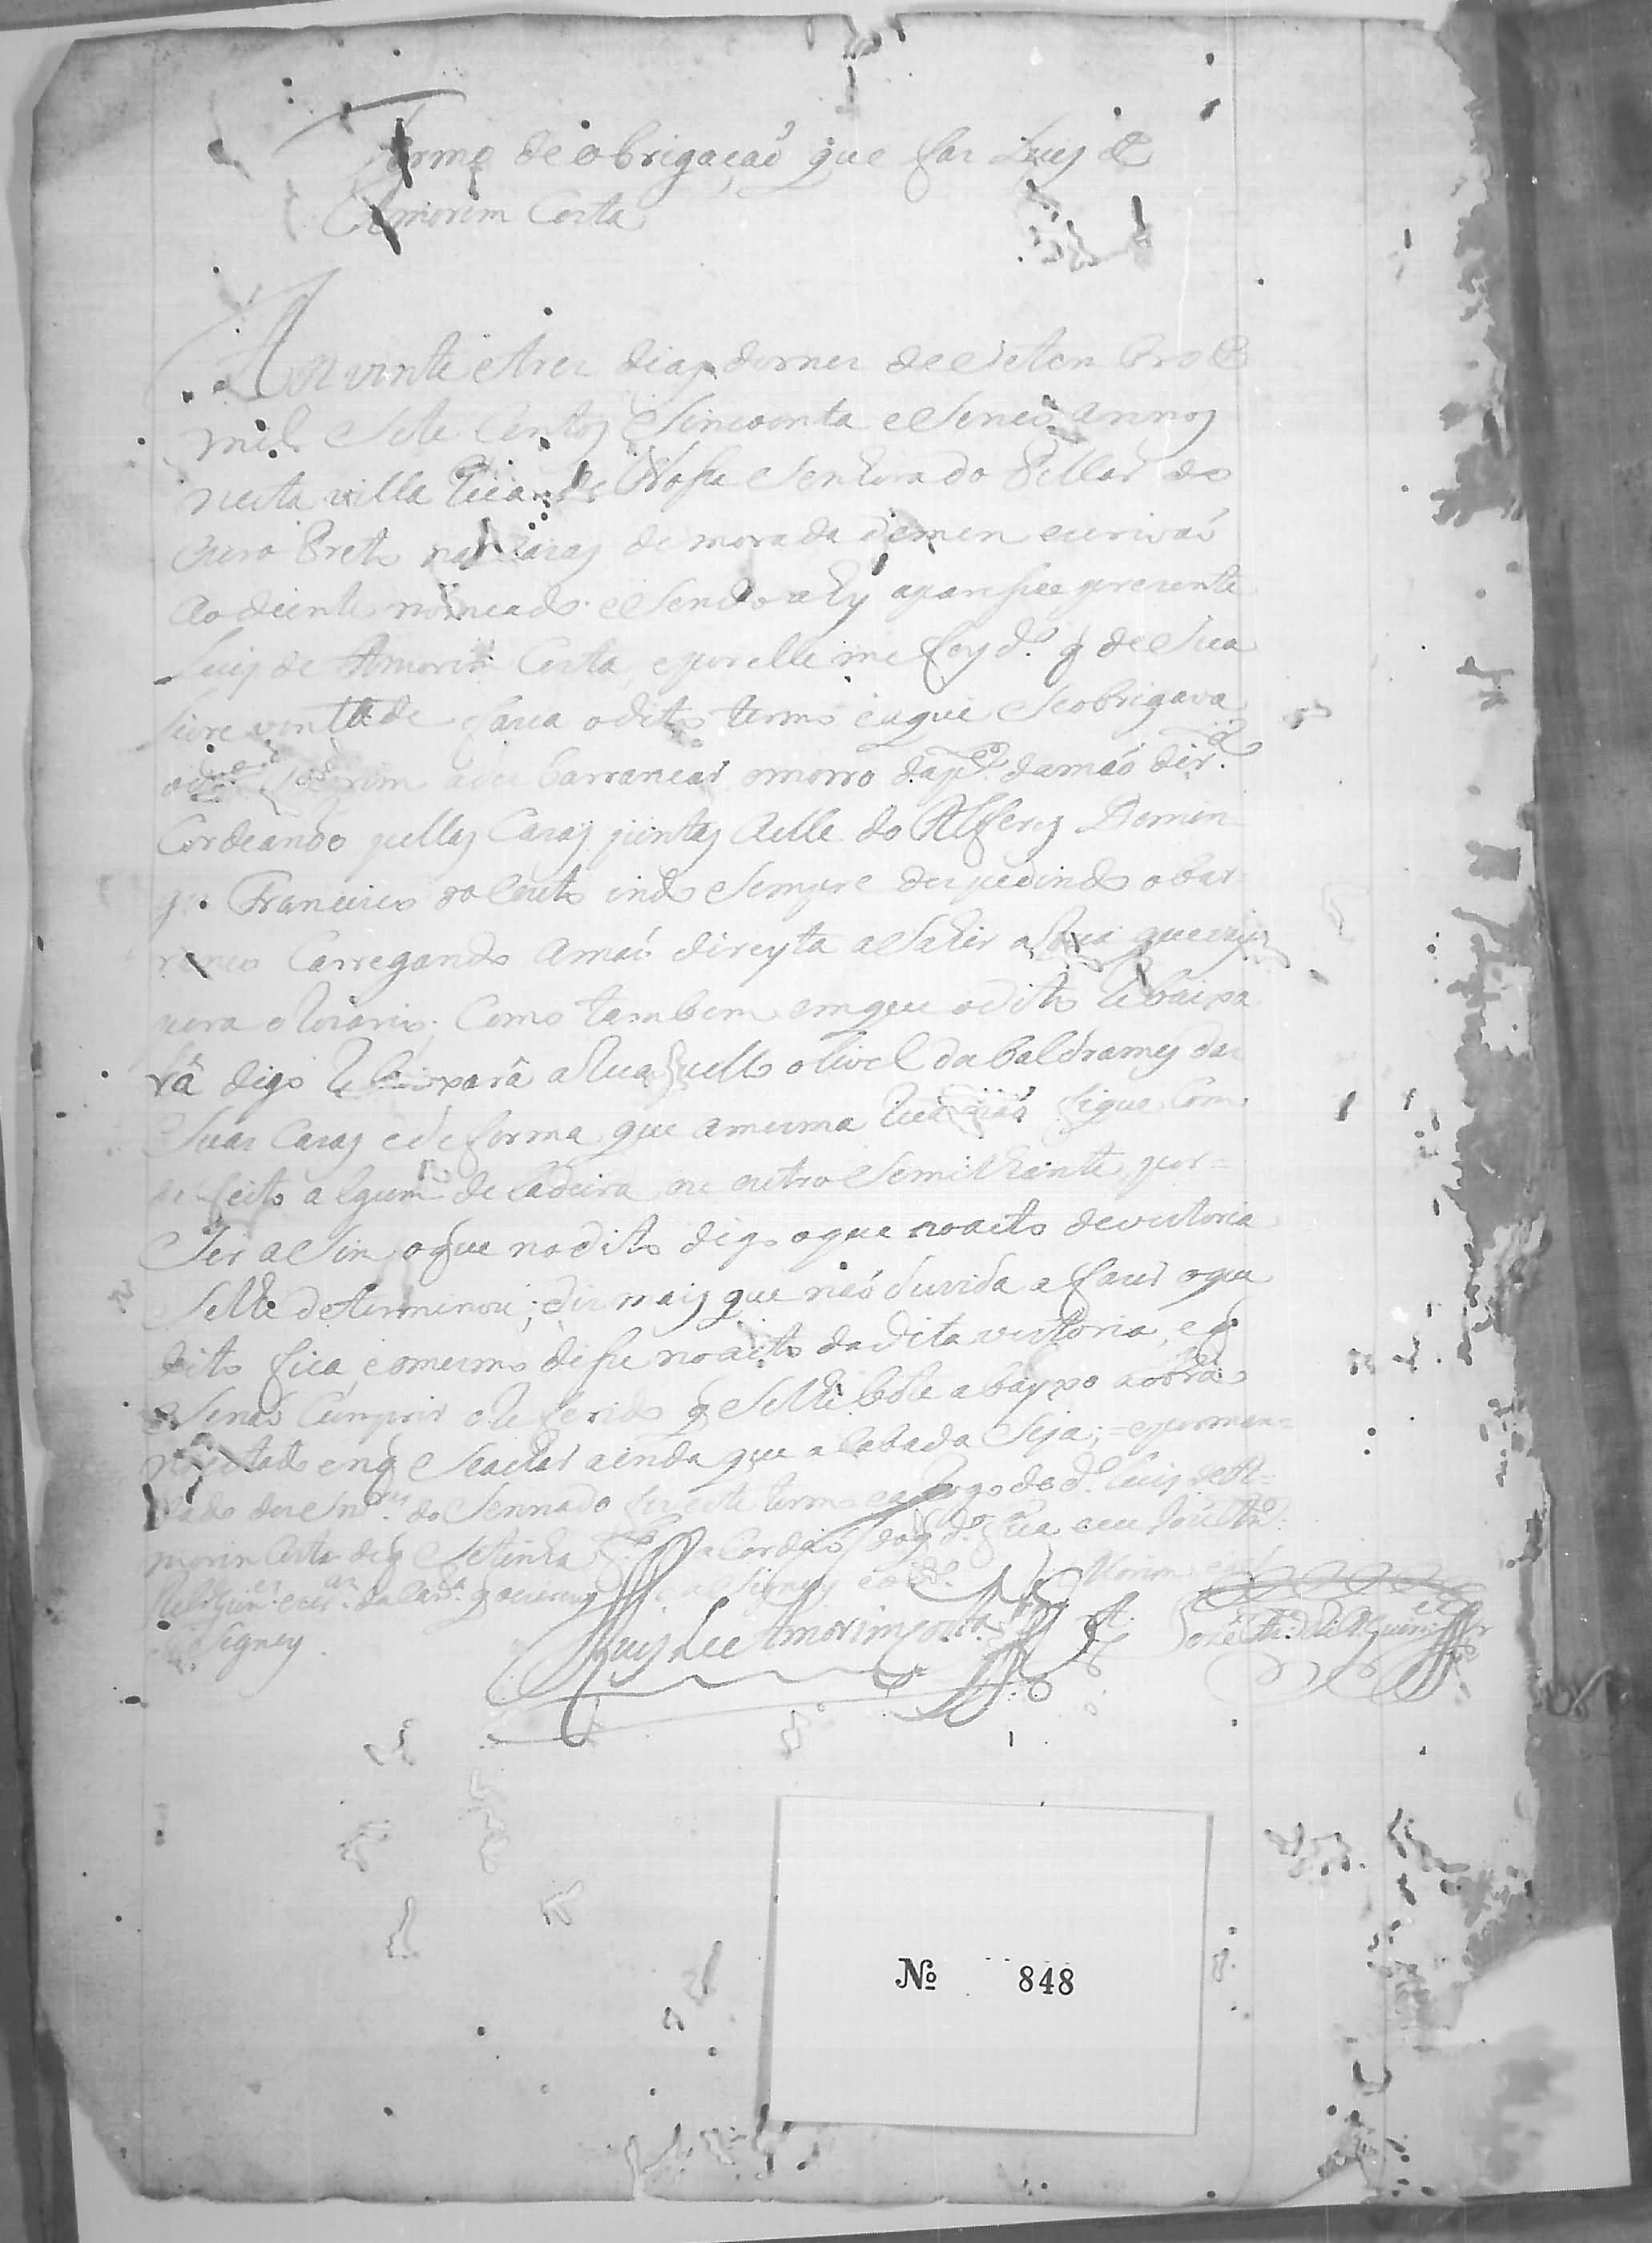 Termo de obrigaçaõ que faz Luis de
Amorim Costa
Aos vinte e tres dias do mez de Setembro de
mil e Sete Centos e Sincoenta e Sinco annos
nesta villa Rica de Nossa Senhora do Pillar do
Ouro Preto nas Cazas de morada de mim escrivaõ
ao diente nomeado e Sendo ahy aparesseo prezente
Luis de Amorim Costa, e por elle me foy d.º q de Sua
livre vontade fazia o dito termo em que Se obrigava
o d.º a desbarrancar o morro da p.te da maõ dir.ta
Cordeando pellas Cazas juntas a elle do Alferes Domin
gos Francisco do Couto indo Sempre despedindo o bar
ranco Carregando a maõ direyta a Sahir a Rua que vay
para o Rozario; Como tambem em que o dito Rebaixa
rá digo Rebaixará a Rua pello olivel dos baldrames das
Suas Cazas e de forma que a mesma Rua naõ fique Com
defeito algum de ladeira ou outro Semilhante, por=
Ser aSim o que no dito digo o que no auto de vestoria
Se lhe determinou; e diz mais que naõ duvida a fazer o que
dito fica, e o mesmo disse no auto da dita vestoria, e q
Senaõ Cumprir o Referido q Se lhe bote abayxo a obra
no estado em q Se achar ainda que acabada Seja; = e por man=
dado dos Sn.res do Sennado fiz este termo e a Rogo do d.º Luis de A=
morim Costa de q Se tinha
asigney
Luis de Amorim Costa
Joze An.to
Nº 848